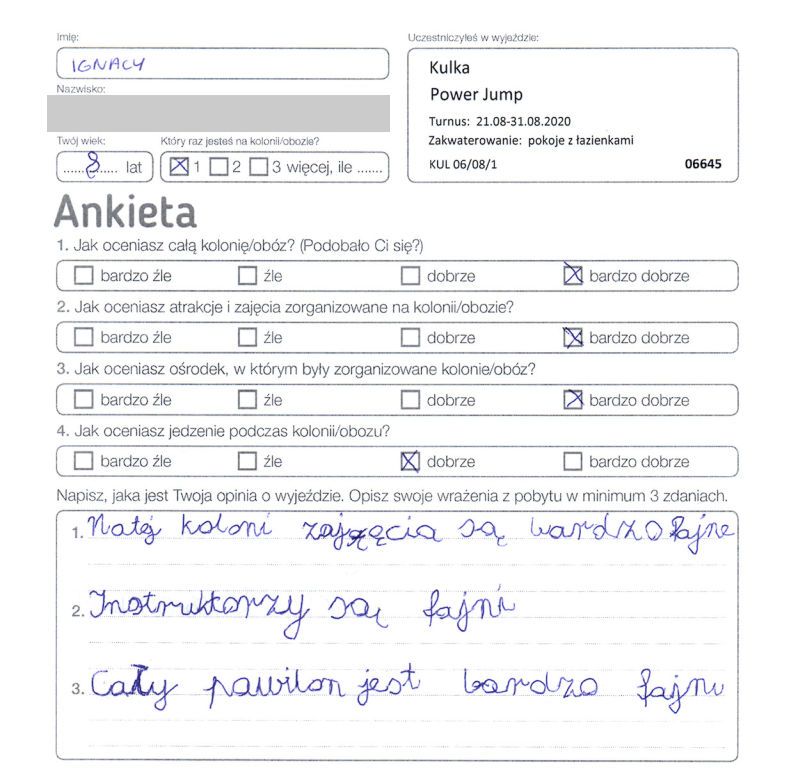 Imię:
IGNACY
Nazwisko:
Twój wiek:
8 lat
Który raz jesteś na kolonii/obozie?
1 2 3 więcej, ile .......
Uczestniczyłeś w wyjeździe:
Kulka
Power Jump
Turnus: 21.08-31.08.2020
Zakwaterowanie: pokoje z łazienkami
KUL 06/08/1 06645
Ankieta
1. Jak oceniasz całą kolonię/obóz? (Podobało Ci się?)
bardzo źle źle dobrze bardzo dobrze
2. Jak oceniasz atrakcje i zajęcia zorganizowane na kolonii/obozie?
bardzo źle źle dobrze bardzo dobrze
3. Jak oceniasz ośrodek, w którym były zorganizowane kolonie/obóz?
bardzo źle źle dobrze bardzo dobrze
4. Jak oceniasz jedzenie podczas kolonii/obozu?
bardzo źle źle dobrze bardzo dobrze
Napisz, jaka jest Twoja opinia o wyjeździe. Opisz swoje wrażenia z pobytu w minimum 3 zdaniach.
1. Natej koloni zajęcia są bardzo fajne
2. Instruktorzy są fajni
3. Cały pawilon jest bardzo fajny